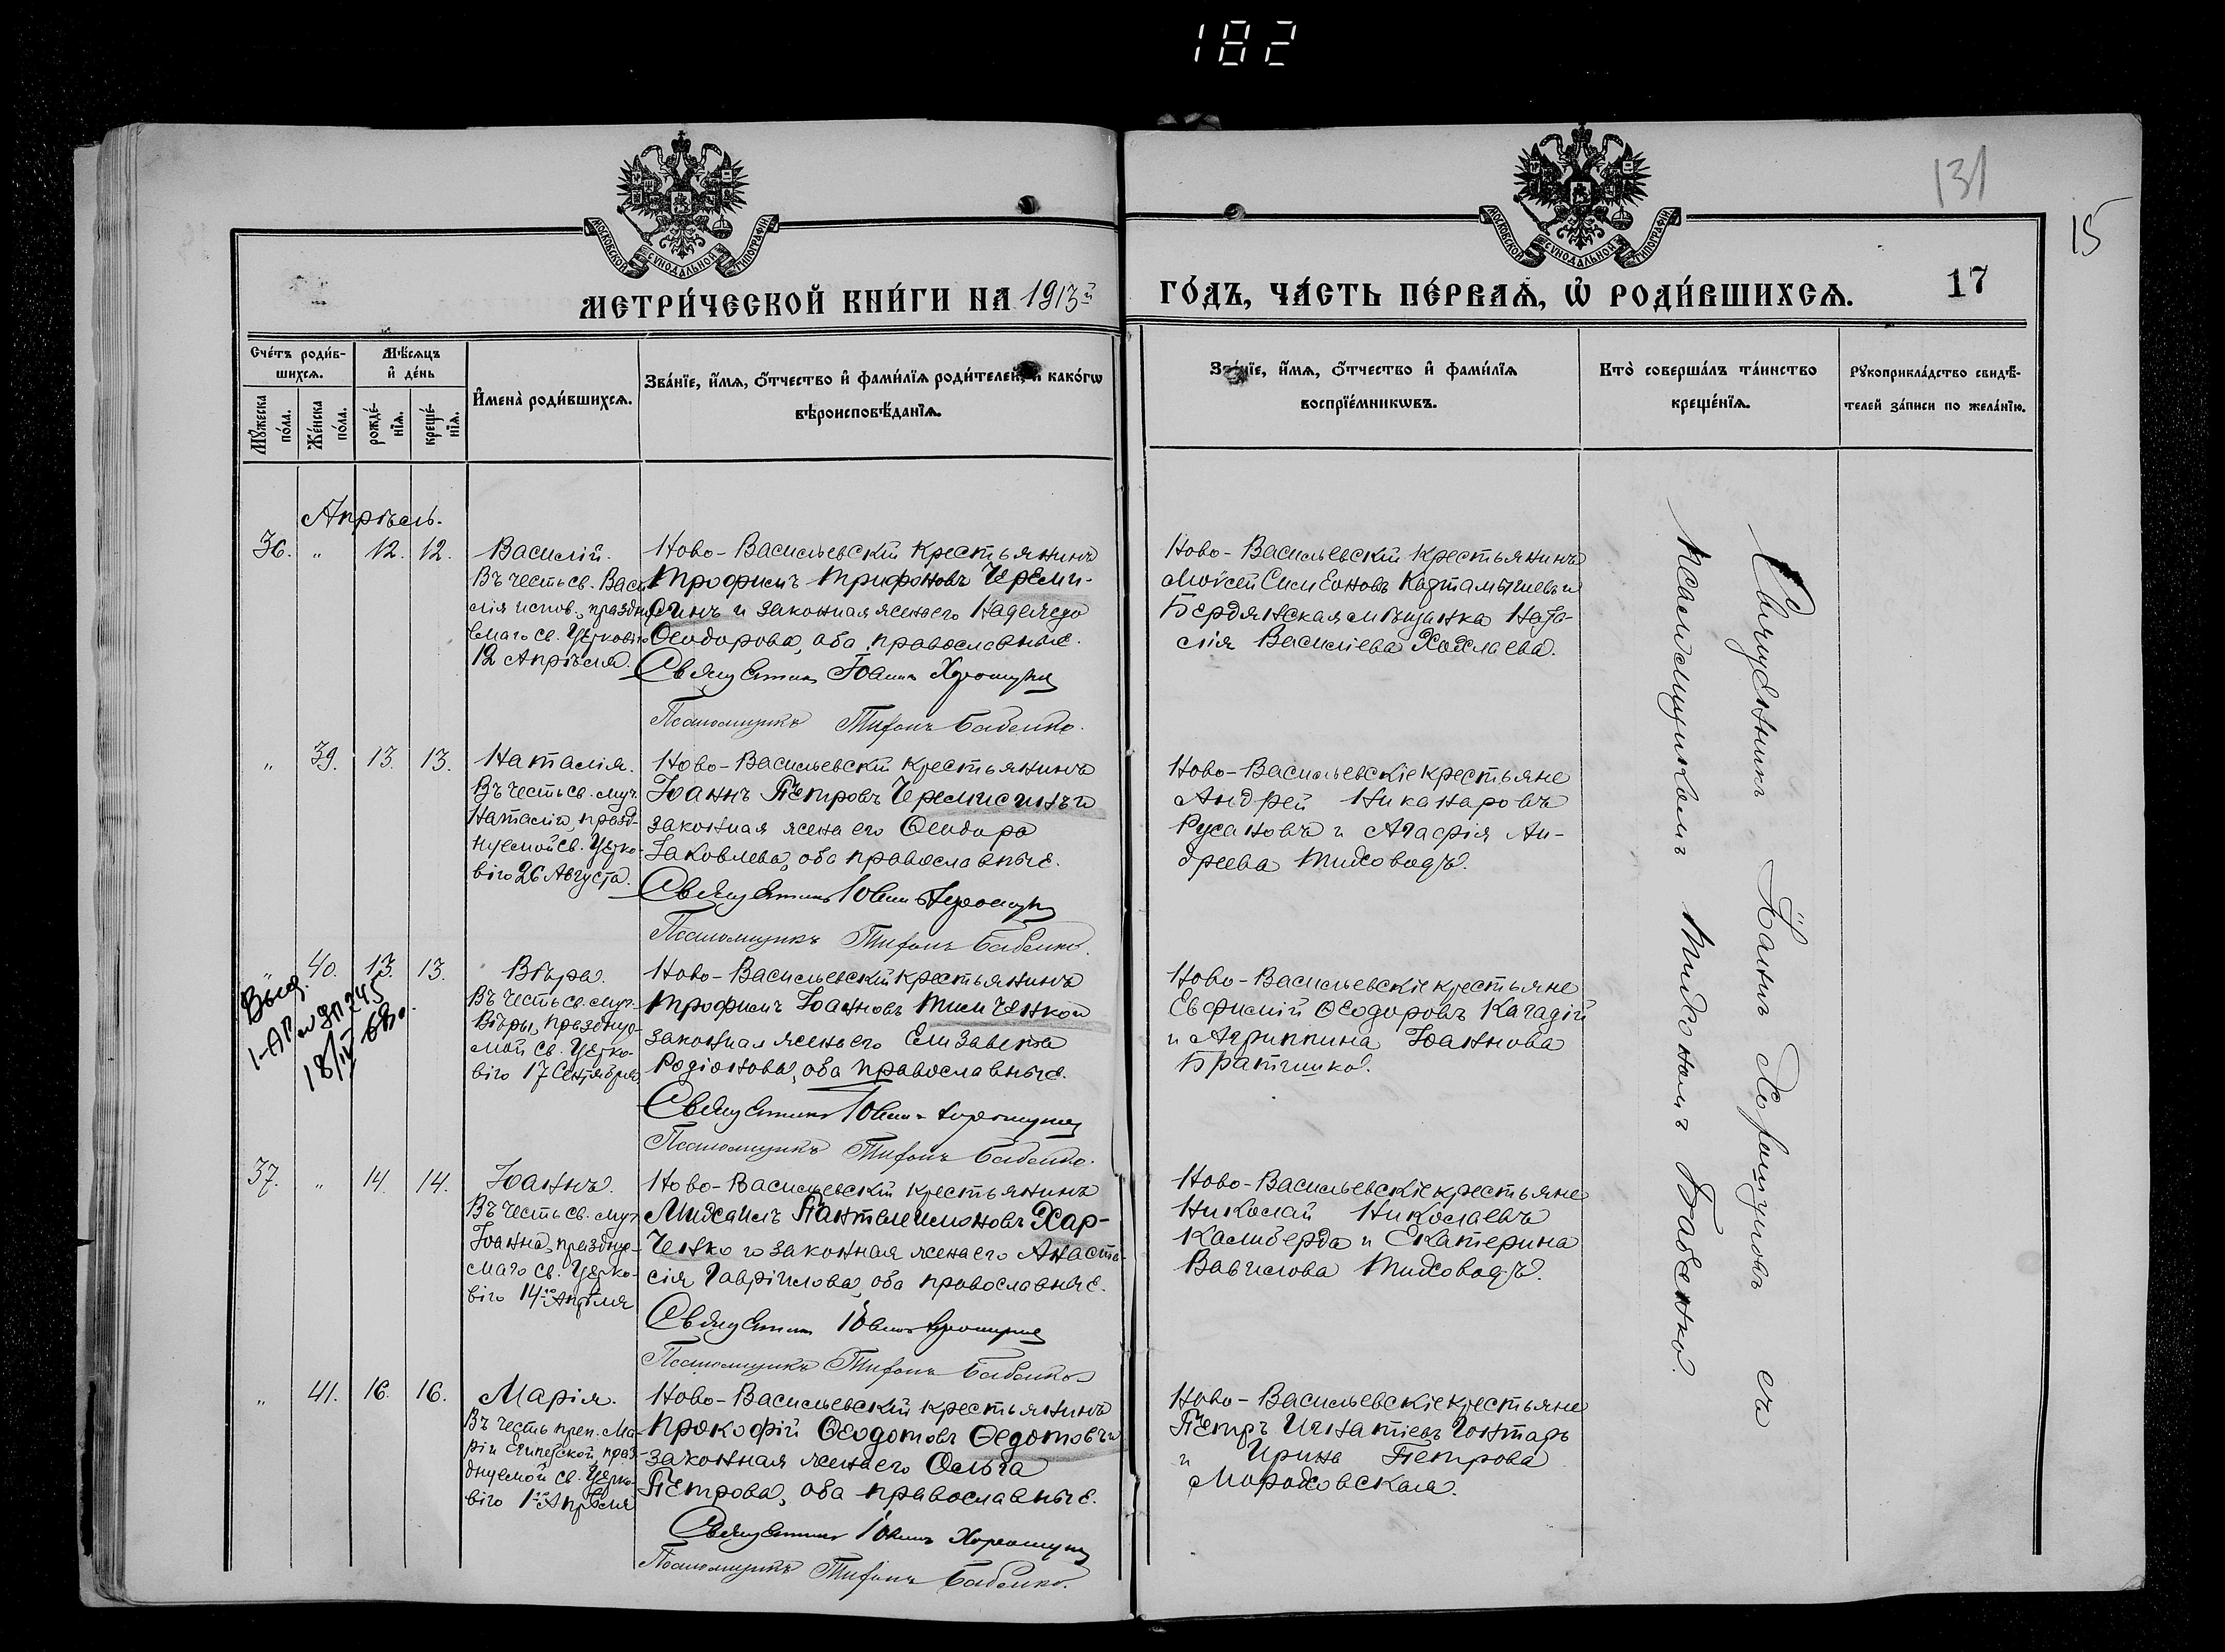 182
131
15
МОСКОВСКОЙ СѴНОДАЛЬНОЙ ТИПОГРАФІИ
МОСКОВСКОЙ СѴНОДАЛЬНОЙ ТИПОГРАФІИ
МЕТРИ́ЧЕСКОЙ КНИ́ГИ НА 1913й
ГО́ДЪ, ЧА́СТЬ ПЕ́РВАѦ, Ѽ РОДИ́ВШИХСѦ.
17
Сче́тъ роди́в-
шихсѧ.
Мѣ́сѧцъ
и҆ де́нь
Мꙋ́жеска
по́ла.
Же́нска
по́ла.
рожде́-
нїѧ.
креще́-
нїѧ.
И҆мена̀ роди́вшихсѧ.
Зва́нїе, и҆́мѧ, ѻ҆́тчество и҆ фами́лїѧ роди́телей, и҆ како́гѡ
вѣроисповѣ́данїѧ.
Зва́нїе, и҆́мѧ, ѻ҆́тчество и҆ фами́лїѧ
воспрїе́мникѡвъ.
Кто̀ соверша́лъ та́инство
креще́нїѧ.
Рꙋкоприкла́дство свидѣ́-
телей за́писи по жела́нїю.
Апрѣль.
36. " 12. 12.
Василій.
Въ честь св. Васи
лія испов., праздну
емаго св. Церковію
12 Апрѣля.
Ново-Васильевскій крестьянинъ
Трофимъ Трифоновъ Череми-
синъ и законная жена его Надежда
Ѳеодорова, оба православные.
Священникъ Іоаннъ Хорошунъ
Псаломщикъ Тихонъ Бабенко.
Ново-Васильевскій крестьянинъ
Моѵсей Симеоновъ Картамышевъ и
Бердянская мѣщанка Ната-
лія Васильева
" 39. 13. 13.
Наталія.
Въ честь св. муч.
Наталіи, празд-
нуемой св. Церко-
вію 26 Августа.
Ново-Васильевскій крестьянинъ
Іоаннъ Петровъ Черемисинъ и
законная жена его Ѳеодора
Іаковлева, оба православные.
Священникъ Іоаннъ Хорошунъ
Псаломщикъ Тихонъ Бабенко.
Ново-Васильевскіе крестьяне
Андрей Никаноровъ
Русановъ и Агафія Ан-
дреева Тиховодъ.
" 40. 13. 13.
Выд.
18/IV 68г.
Вѣра.
Въ честь св. муч.
Вѣры, празднуе-
мой св. Церко-
вію 17 Сентября
Ново-Васильевскій крестьянинъ
Трофимъ Іоанновъ Тимченко и
законная жена его Елизавета
Родіонова, оба православные.
Священникъ Іоаннъ Хорошунъ
Псаломщикъ Тихонъ Бабенко.
Ново-Васильевскіе крестьяне
Евфимій Ѳеодоровъ Карадій
и Агриппина Іоаннова
Братишко.
37. " 14. 14.
Іоаннъ.
Въ честь св. муч.
Іоанна, празднуе-
маго св. Церко-
вію 14го Апрѣля
Ново-Васильевскій крестьянинъ
Михаилъ Пантелеимоновъ Хар-
ченко и законная жена его Анаста-
сія Гавріилова, оба православные.
Священникъ Іоаннъ Хорошунъ
Псаломщикъ Тихонъ Бабенко
Ново-Васильевскіе крестьяне
Николай Николаевъ
Калиберда и Екатерина
Вавилова Тиховодъ.
" 41. 16. 16.
Марія.
Въ честь преп. Ма-
ріи Египетской, праз-
днуемой св. Церко-
вію 1го Апрѣля
Ново-Васильевскій крестьянинъ
Прокофій Ѳеодотовъ Ѳедотовъ и
законная жена его Ольга
Петрова, оба православные.
Священникъ Іоаннъ Хорошунъ
Псаломщикъ Тихонъ Бабенко.
Ново-Васильевскіе крестьяне
Петръ Игнатіевъ Гонтарь
и Ирина Петрова
Мороховская.
Священникъ Іоаннъ Хорошуновъ съ
псаломщикомъ Тихономъ Бабенко.